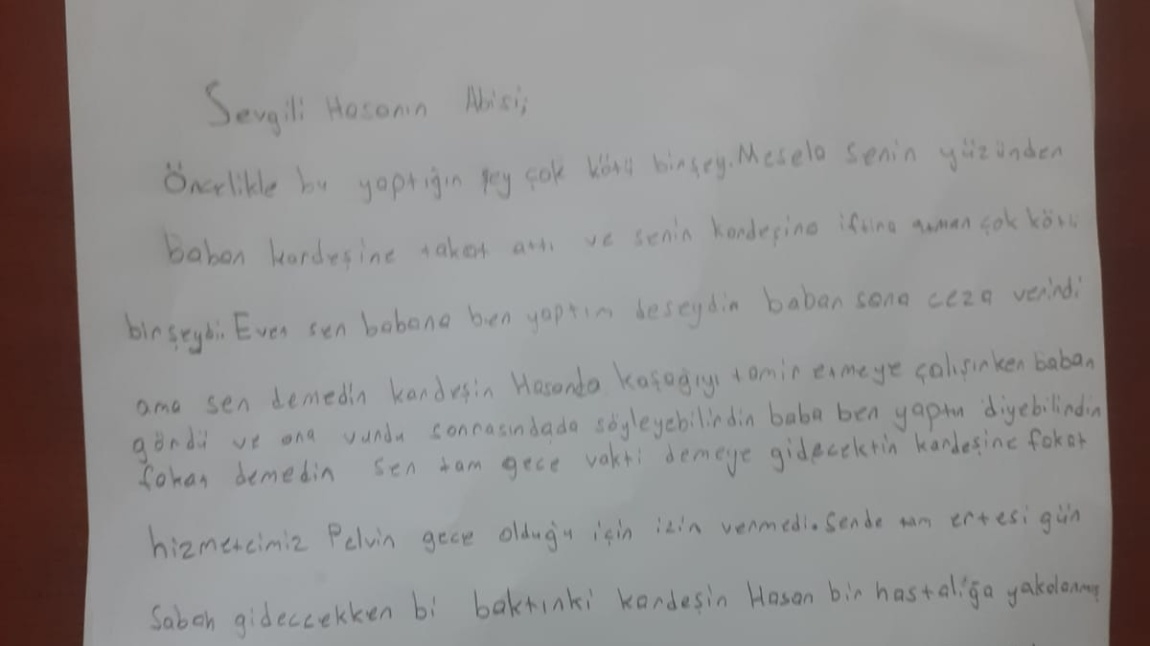 Sevgili Hasanın Abisi;
Öncelikle bu yaptığın şey çok kötü birşey. Mesela senin yüzünden
baban kardeşine tokat attı ve senin kardeşine iftira atman çok kötü
birşeydi. Eğer sen babana ben yaptım deseydin baban sana ceza verirdi
ama sen demedin kardeşin Hasanda kaşağıyı tamir etmeye çalışırken baban
gördü ve ona vurdu sonrasındada söyleyebilirdin baba ben yaptım diyebilirdin
fakat demedin sen tam gece vakti demeye gidecektin kardeşine fakat
hizmetcimiz Pelvin gece olduğu için izin vermedi. Sende tam ertesi gün
Sabah gidecekken bi baktınki kardeşin Hasan bir hastalığa yakalanmış